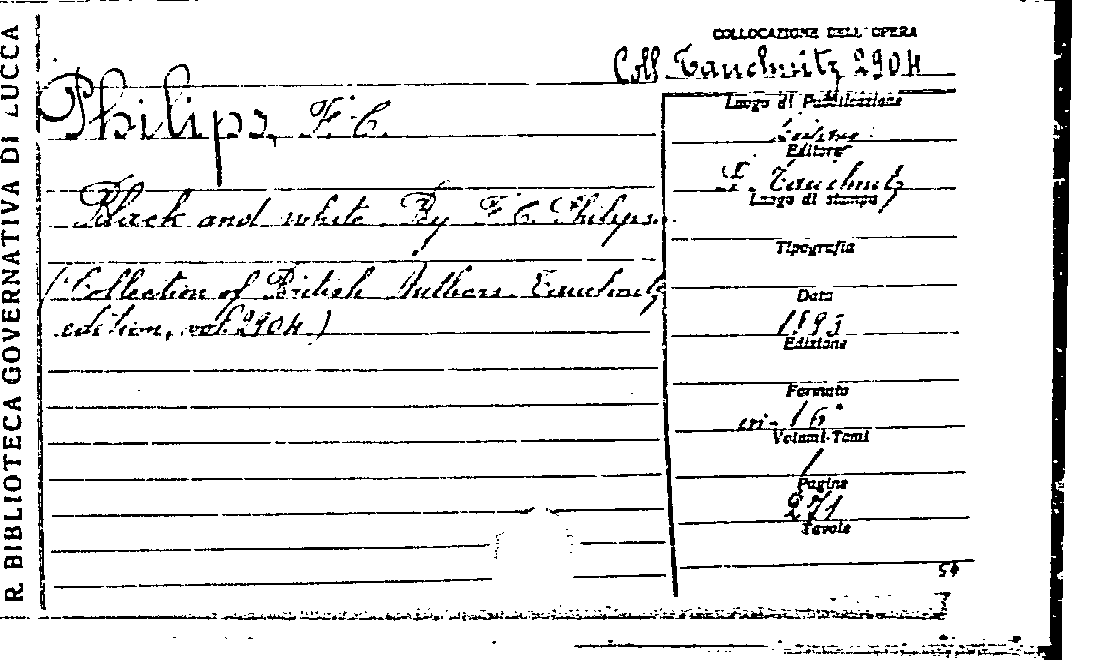 R. BIBLIOTECA GOVERNATIVA DI LUCCA
COLLOCAZIONE DELL'OPERA
Coll. Tauchnitz 2904
Philips, F. C.
Black and white. By F. C. Philips.
(Collection of British Authors. Tauchnitz
edition, vol. 2904.)
Luogo di Pubblicazione
Editore
Tauchnitz
Luogo di stampa
Tipografia
Data
1893
Edizione
Formato
in-16°
Volumi-Tomi
1
Pagine
271
Tavole